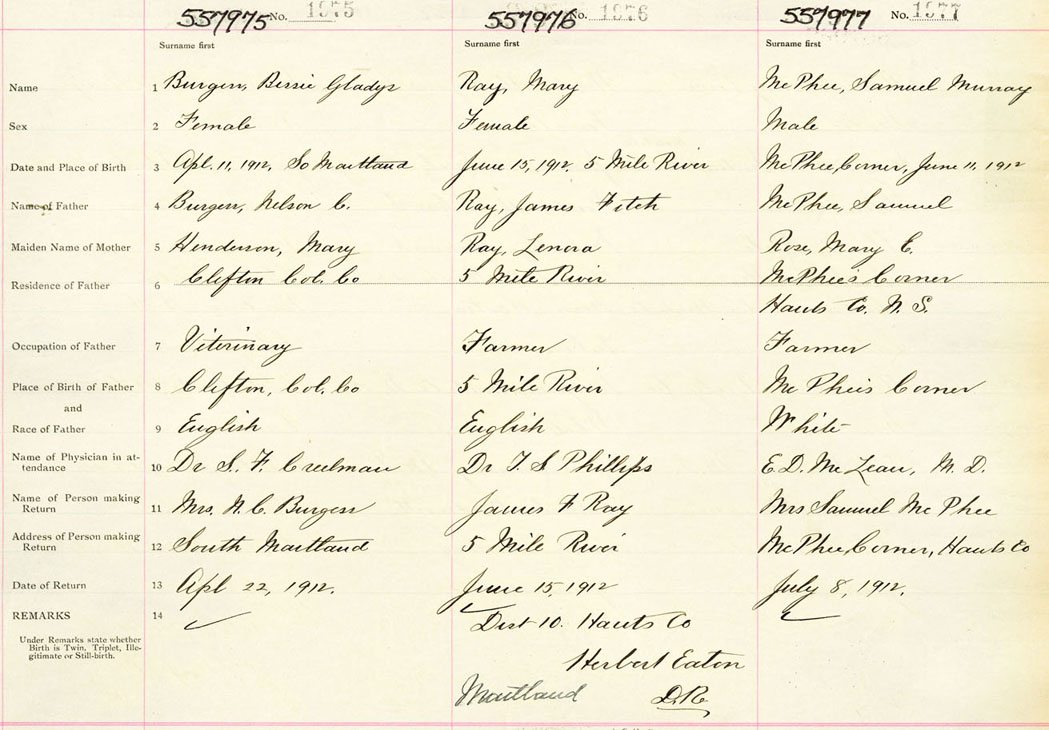 557975 No. 1975 557976 No. 1976 557977 No. 1977
Surname first Surname first Surname first
Name 1 Burgess, Bessie Gladys Ray, Mary McPhee, Samuel Murray
Sex 2 Female Female Male
Date and Place of Birth 3 Apl. 11, 1912, So Maitland June 15, 1912. 5 Mile River McPhee Corner, June 11, 1912
Name of Father 4 Burgess, Nelson C. Ray, James Fitch McPhee, Samuel
Maiden Name of Mother 5 Henderson, Mary Ray, Lenora Rose, Mary E.
Residence of Father 6 Clifton Col. Co 5 Mile River McPhee's Corner
Hants Co. N. S.
Occupation of Father 7 Viterinary Farmer Farmer
Place of Birth of Father 8 Clifton, Col. Co 5 Mile River McPhee's Corner
and
Race of Father 9 English English White
Name of Physician in at-
tendance 10 Dr S. F. Creelman Dr T. S Phillips E. D. McLean, M. D.
Name of Person making
Return 11 Mrs. N. C. Burgess James F Ray Mrs Samuel McPhee
Address of Person making
Return 12 South Maitland 5 Mile River McPhee Corner, Hants Co
Date of Return 13 Apl 22, 1912. June 15, 1912 July 8, 1912.
REMARKS 14 Dist 10. Hants Co
Under Remarks state whether
Birth is Twin, Triplet, Ille-
gitimate or Still-birth.
Herbert Eaton
Maitland D.R.